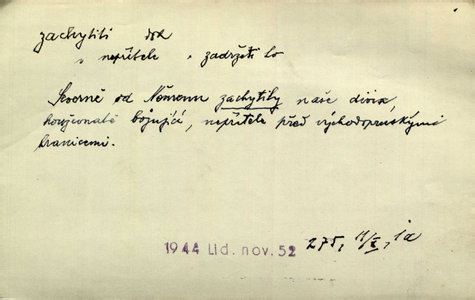 zachytiti dok
s nepřítele, zadržeti ho
Severně od Němanu zachytily naše divise,
houževnatě bojující, nepřítele před východopruskými
hranicemi.
1944 Lid. nov. 52 275, 11/X, 1a